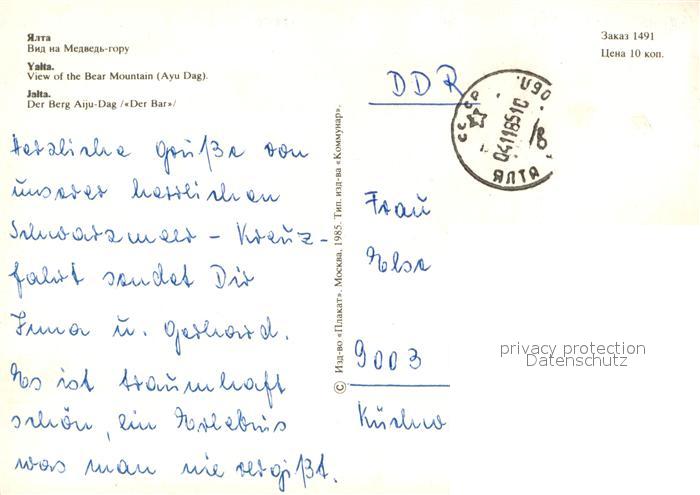 Ялта
Вид на Медведь-гору
Yalta.
View of the Bear Mountain (Ayu Dag).
Jalta.
Der Berg Aiju-Dag /«Der Bar»/
Заказ 1491
Цена 10 коп.
Herzliche Grüße von
unserer herrlichen
Schwarzmeer - Kreuz-
fahrt sendet Dir
Irma u. Gerhard.
Es ist traumhaft
schön, ein Erlebnis
was man nie vergißt.
© Изд-во «Плакат». Москва, 1985. Тип. изд-ва «Коммунар».
DDR
СССР
ЯЛТА
Frau
Elsa
9003
privacy protection
Datenschutz